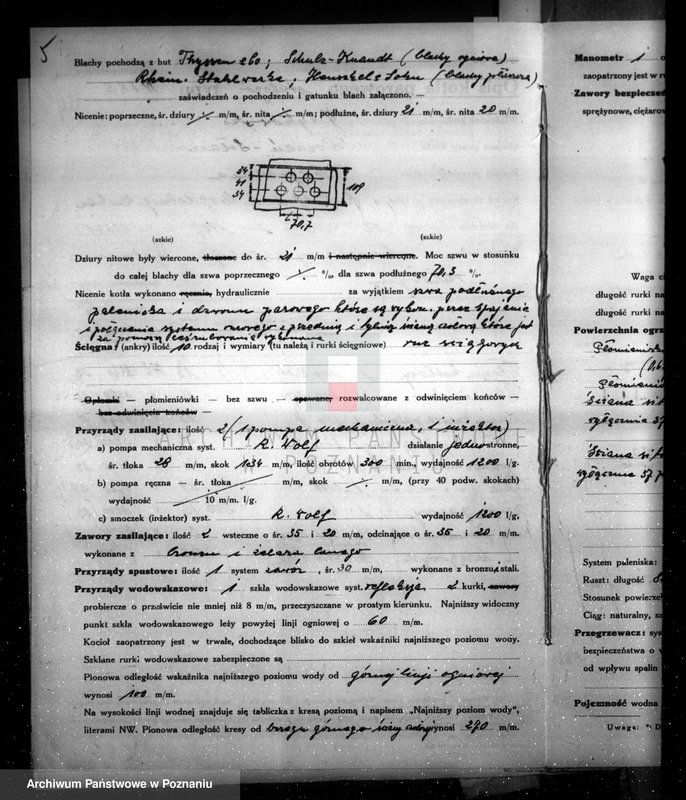 5
Blachy pochodzą z hut Thyssen & Co; Schulz-Knaudt (blachy ogniowe)
Rhein. Stahlwerke, Henschel & Sohn (blachy płaszcza)
zaświadczeń o pochodzeniu i gatunku blach załączono.
Nicenie: poprzeczne, śr. dziury ./. m/m, śr. nita ./. m/m; podłużne, śr. dziury 21 m/m, śr. nita 20 m/m.
34
41
34
109
70,7
(szkic) (szkic)
Dziury nitowe były wiercone, tłoczone do śr. 21 m/m i następnie wiercone. Moc szwu w stosunku
do całej blachy dla szwa poprzecznego ./. %, dla szwa podłużnego 70,3 %.
Nicenie kotła wykonano ręcznie, hydraulicznie za wyjątkiem szwa podłużnego
paleniska i dzwonu parowego które są wykon. przez spajanie
i połączenia systemu rurowego z przednią i tylną ścianą czołową które jest
za pomocą ześrubowania wykonane
Ściągna: (ankry) ilość 10 rodzaj i wymiary (tu należą i rurki ściągniowe) rur ściągowych
Opłomki — płomieniówki — bez szwu — spawane, rozwalcowane z odwinięciem końców —
bez odwinięcia końców —
Przyrządy zasilające: ilość 2 (1 pompa mechaniczna, 1 inżektor)
a) pompa mechaniczna syst. R. Wolf działanie jedno-stronne,
śr. tłoka 28 m/m, skok 134 m/m, ilość obrotów 300 min., wydajność 1200 l/g.
b) pompa ręczna — śr. tłoka m/m, skok ./. m/m, (przy 40 podw. skokach)
wydajność 10 m/m. l/g.
c) smoczek (inżektor) syst. R. Wolf wydajność 1200 l/g,
Zawory zasilające: ilość 2 wsteczne o śr. 35 i 20 m/m, odcinające o śr. 35 i 20 m/m.
wykonane z bronzu i żelaza lanego
Przyrządy spustowe: ilość 1 system zawór, śr. 30 m/m, wykonane z bronzu i stali.
Przyrządy wodowskazowe: 1 szkła wodowskazowe syst. refleksja 2 kurki, zawory
probiercze o prześwicie nie mniej niż 8 m/m, przeczyszczane w prostym kierunku. Najniższy widoczny
punkt szkła wodowskazowego leży powyżej linji ogniowej o 60 m/m.
Kocioł zaopatrzony jest w trwałe, dochodzące blisko do szkieł wskaźniki najniższego poziomu wody.
Szklane rurki wodowskazowe zabezpieczone są
Pionowa odległość wskaźnika najniższego poziomu wody od górnej linji ogniowej
wynosi 100 m/m.
Na wysokości linji wodnej znajduje się tabliczka z kresą poziomą i napisem „Najniższy poziom wody",
literami NW. Pionowa odległość kresy od brzegu górnego wynosi 270 m/m.
Manometr 1
zaopatrzony jest w r
Zawory bezpieczeń
sprężynowe, ciężarow
Waga ci
długość rurki na
długość rurki
Powierzchnia ogrz
Płomienisk
Płomienió
Ściana sit
wyłącznie 37
Ściana sito
wyłącznie 37 p
System paleniska:
Ruszt: długość
Stosunek powierz
Ciąg: naturalny, sz
Przegrzewacz: sys
bezpieczeństwa o
od wpływu spalin
Pojemność wodna
Uwaga: *) D
ARCHIWUM PAŃSTWOWE
POZNANIU
Archiwum Państwowe w Poznaniu